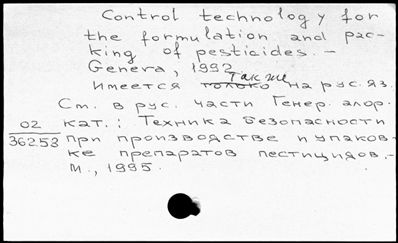 Control technology for
the formulation and pac-
king of pesticides. –
Genera, 1992
также
Имеется только на рус. яз.
См. в рус. части Генер. алфав.
02 кат.: Техника безопасности
36253 при производстве и упаков-
ке препаратов пестицидов. –
М., 1995.